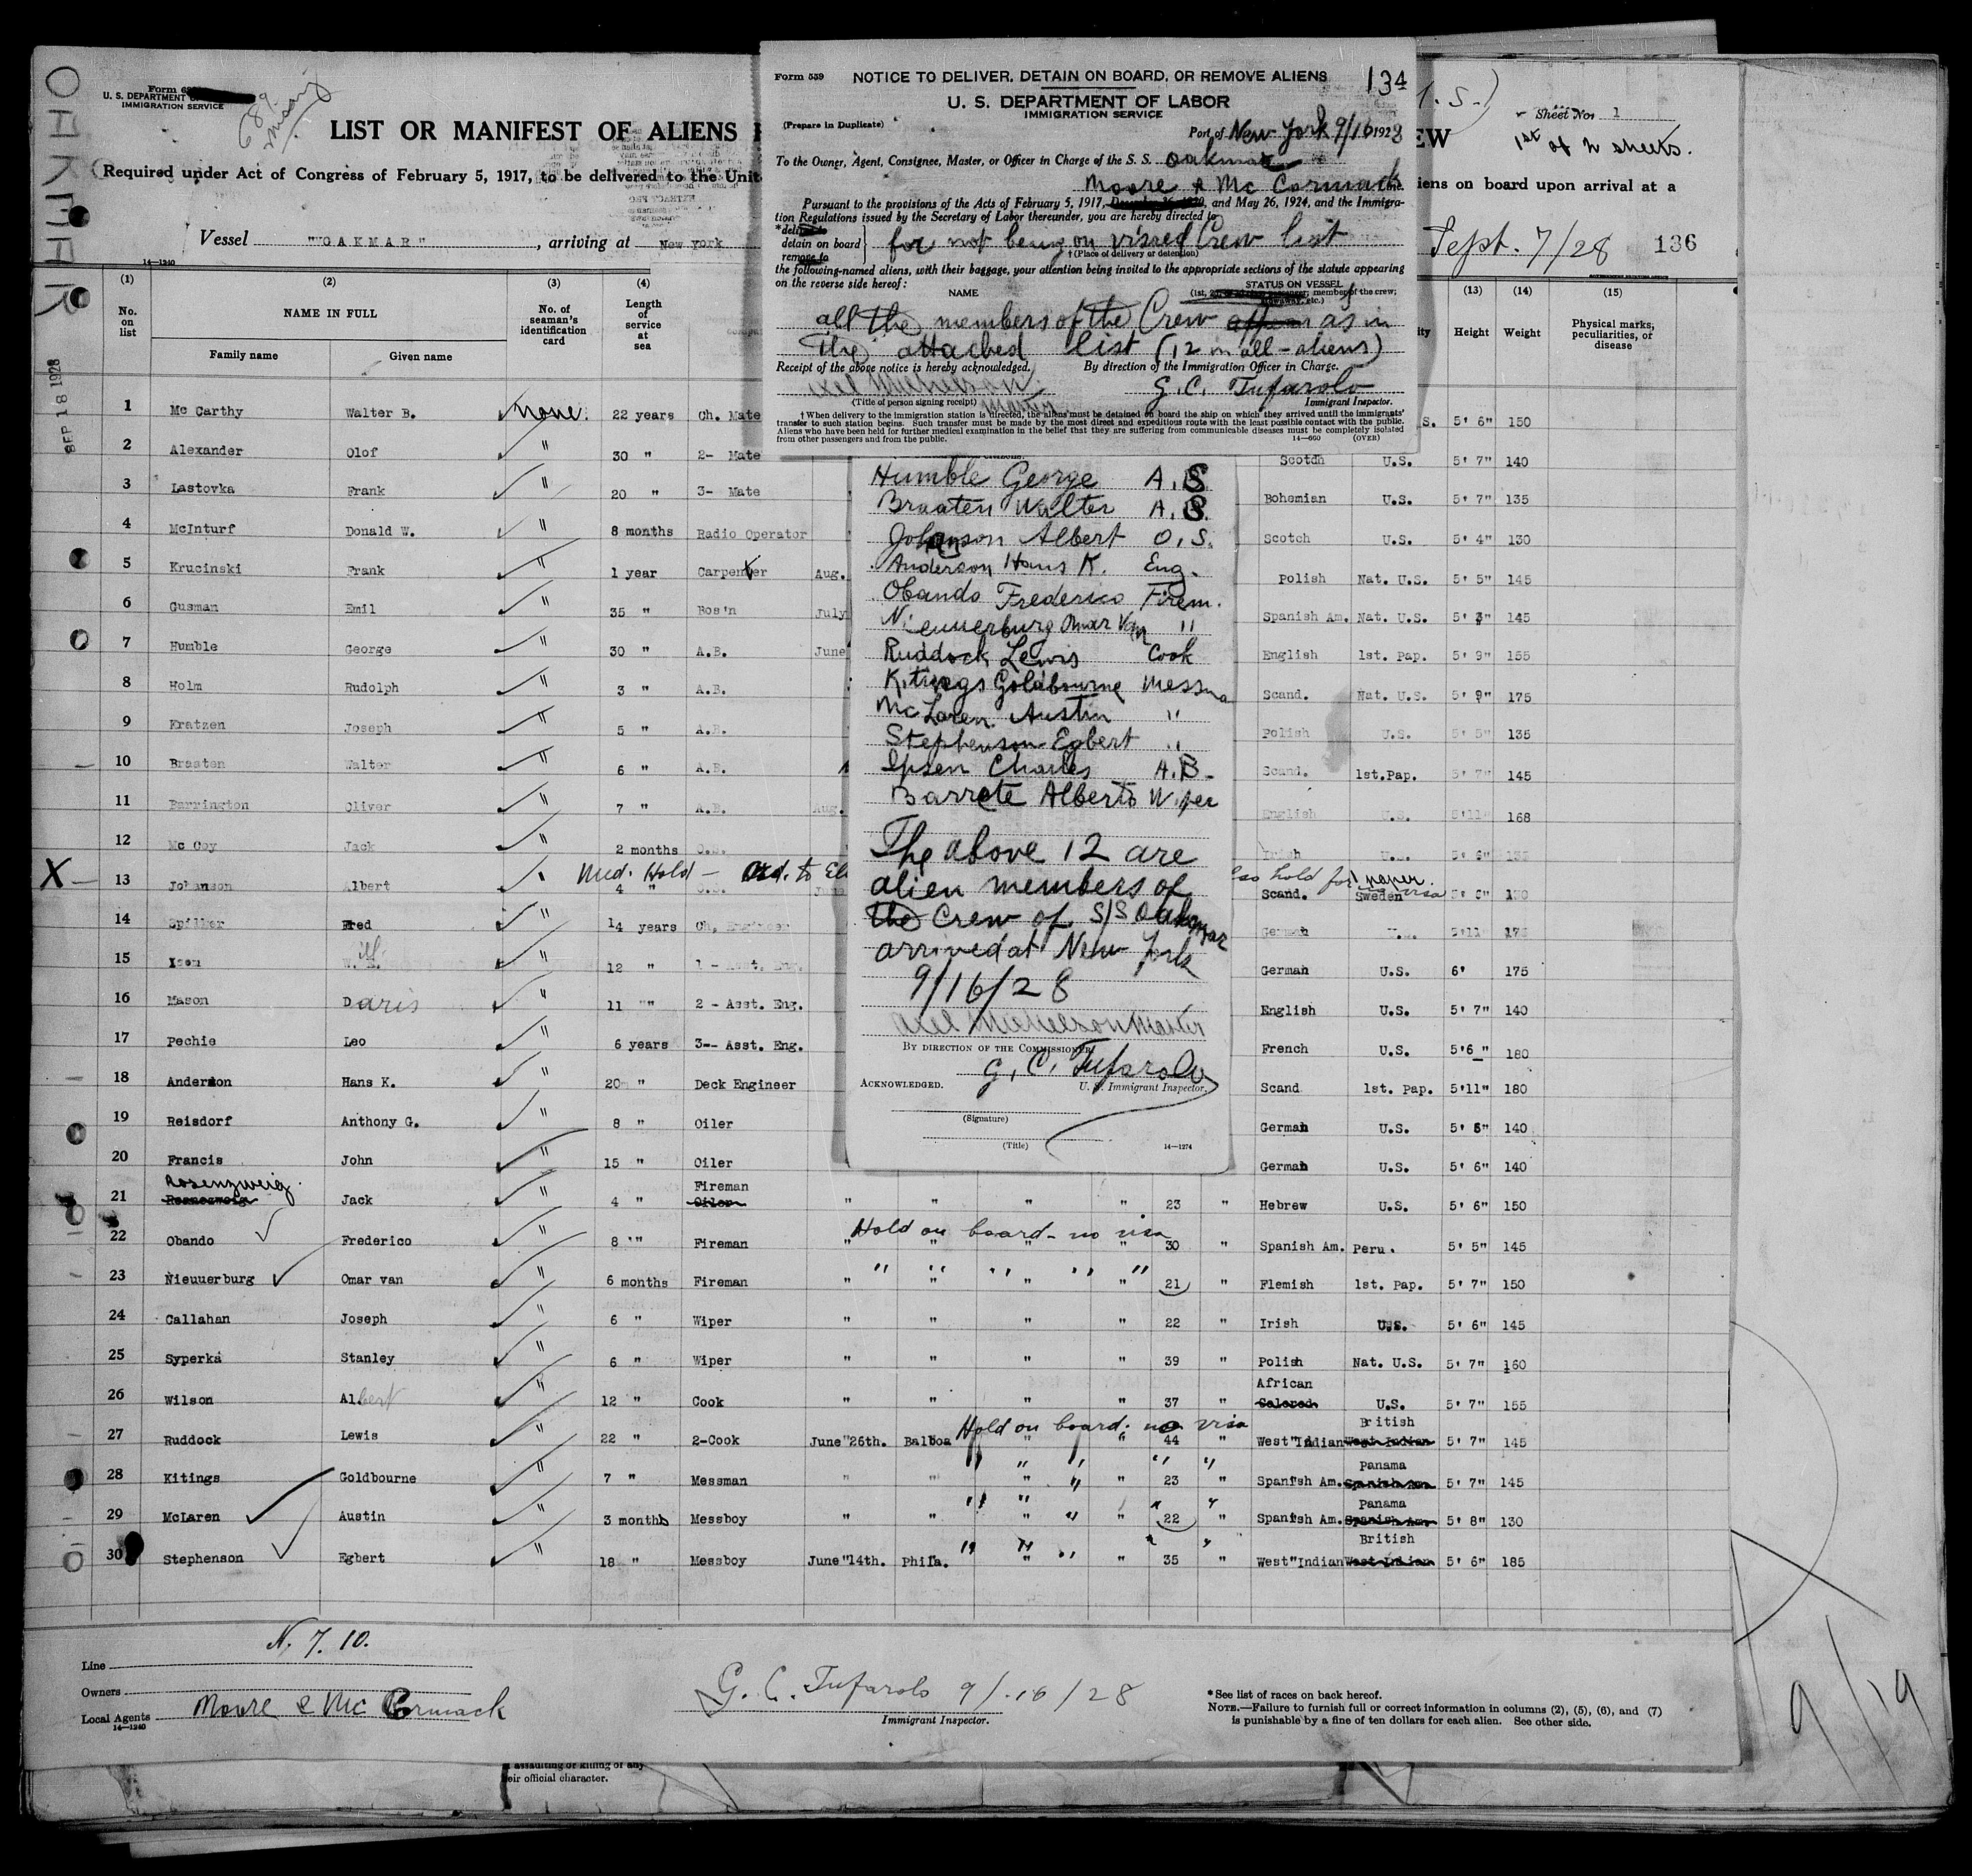 OAKMAR
SEP 18 1928
Form 68
U. S. DEPARTMENT
IMMIGRATION SERVICE
689
LIST OR MANIFEST OF ALIENS
EW
Sheet No. 1
1st of 2 sheets.
(Required under Act of Congress of February 5, 1917, to be delivered to the Unit
iens on board upon arrival at a
Vessel "OAKMAR", arriving at New York
Sept. 7/28 136
14—1240
Form 559 NOTICE TO DELIVER, DETAIN ON BOARD, OR REMOVE ALIENS 134
U. S. DEPARTMENT OF LABOR
IMMIGRATION SERVICE
(Prepare in Duplicate)
Port of New York 9/16 1928
To the Owner, Agent, Consignee, Master, or Officer in Charge of the S. S. Oakmar
Moore & Mc Cormack
Pursuant to the provisions of the Acts of February 5, 1917, December 26, 1920, and May 26, 1924, and the Immigra-
tion Regulations issued by the Secretary of Labor thereunder, you are hereby directed to
*deliver to
detain on board } for not being on visaed Crew list
remove to
†(Place of delivery or detention)
the following-named aliens, with their baggage, your attention being invited to the appropriate sections of the statute appearing
on the reverse side hereof:
NAME STATUS ON VESSEL
all the members of the Crew as in
the attached list (12 in all - aliens)
Receipt of the above notice is hereby acknowledged. By direction of the Immigration Officer in Charge.
Axel Michelson G. C. Tufarolo
(Title of person signing receipt) Master Immigrant Inspector.
†When delivery to the immigration station is directed, the aliens must be detained on board the ship on which they arrived until the immigrants'
transfer to such station begins. Such transfer must be made by the most direct and expeditious route with the least possible contact with the public.
Aliens who have been held for further medical examination in the belief that they are suffering from communicable diseases must be completely isolated
from other passengers and from the public. 14—660 (OVER)
Humble George A.B.
Braaten Walter A.B.
Johanson Albert O.S.
Anderson Hans K. Eng.
Obando Frederico Firem.
Nieuuerburg Omar Van "
Ruddock Lewis Cook
Kitings Goldbourne Messma
McLaren Austin "
Stephenson Egbert "
Ipsen Charles A.B.
Barrete Alberto Wiper
The above 12 are
alien members of
the Crew of S/S Oakmar
arrived at New York
9/16/28
Axel Michelson Master
BY DIRECTION OF THE COMMISSIONER
G. C. Tufarolo
ACKNOWLEDGED. U. S. Immigrant Inspector.
(Signature)
(Title) 14—1274
(1) (2) (3) (4) (13) (14) (15)
No. on list NAME IN FULL No. of seaman's identification card Length of service at sea Height Weight Physical marks, peculiarities, or disease
Family name Given name
1 Mc Carthy Walter B. none. 22 years Ch. Mate S. 5' 6" 150
2 Alexander Olof " 30 " 2- Mate Scotch U.S. 5' 7" 140
3 Lastovka Frank " 20 " 3- Mate Bohemian U.S. 5' 7" 135
4 McInturf Donald W. " 8 months Radio Operator Scotch U.S. 5' 4" 130
5 Krucinski Frank " 1 year Carpenter Aug. Polish Nat. U.S. 5' 5" 145
6 Gusman Emil " 35 " Bos'n July Spanish Am. Nat. U.S. 5' 3" 145
7 Humble George " 30 " A.B. June English 1st. Pap. 5' 9" 155
8 Holm Rudolph " 3 " A.B. Scand. Nat. U.S. 5' 9" 175
9 Kratzen Joseph " 5 " A.B. Polish U.S. 5' 5" 135
10 Braaten Walter " 6 " A.B. Scand. 1st.Pap. 5' 7" 145
11 Barrington Oliver " 7 " A.B. Aug. English U.S. 5'11" 168
12 Mc Coy Jack " 2 months O.S. Irish U.S. 5' 6" 135
X Med. Hold - Ord. to El lso hold for proper visa
13 Johanson Albert 4 " O.S. June Scand. Sweden 5' 6" 130
14 Spilker Fred " 14 years Ch. Engineer German U.S. 5'11" 175
15 " 12 " 1 - Asst. Eng. German U.S. 6' 175
16 Mason Daris " 11 " 2 - Asst. Eng. English U.S. 5' 7" 140
17 Pechie Leo " 6 years 3-- Asst. Eng. French U.S. 5'6" 180
18 Anderson Hans K. " 20 " Deck Engineer Scand 1st. Pap. 5'11" 180
19 Reisdorf Anthony G. " 8 " Oiler German U.S. 5' 6" 140
20 Francis John " 15 " Oiler German U.S. 5' 6" 140
Rosenzweig Fireman
21 Jack " 4 " Oiler " " " " 23 " Hebrew U.S. 5' 6" 150
Hold on board - no visa
22 Obando Frederico " 8 " Fireman " " " " 30 " Spanish Am. Peru. 5' 5" 145
" " " " "
23 Nieuuerburg Omar van " 6 months Fireman " " " " 21 " Flemish 1st. Pap. 5' 7" 150
24 Callahan Joseph " 6 " Wiper " " " " 22 " Irish U.S. 5' 6" 145
25 Syperka Stanley " 6 " Wiper " " " " 39 " Polish Nat. U.S. 5' 7" 160
African
26 Wilson Albert " 12 " Cook " " " " 37 " Colored U.S. 5' 7" 155
Hold on board; no visa British
27 Ruddock Lewis " 22 " 2-Cook June 26th. Balboa " " 44 " West Indian West Indian 5' 7" 145
" " " " " Panama
28 Kitings Goldbourne " 7 " Messman " " " " 23 " Spanish Am. Spanish Am. 5' 7" 145
" " " " " Panama
29 McLaren Austin " 3 months Messboy " " " " 22 " Spanish Am. Spanish Am. 5' 8" 130
" " " " " British
30 Stephenson Egbert " 18 " Messboy June 14th. Phila. " " 35 " West Indian West Indian 5' 6" 185
N. 7. 10.
Line
Owners
Local Agents Moore & Mc Cormack
14—1240
G. C. Tufarolo 9/16/28
Immigrant Inspector.
*See list of races on back hereof.
NOTE.—Failure to furnish full or correct information in columns (2), (5), (6), and (7)
is punishable by a fine of ten dollars for each alien. See other side.
assaulting or killing of any
eir official character.
9/19